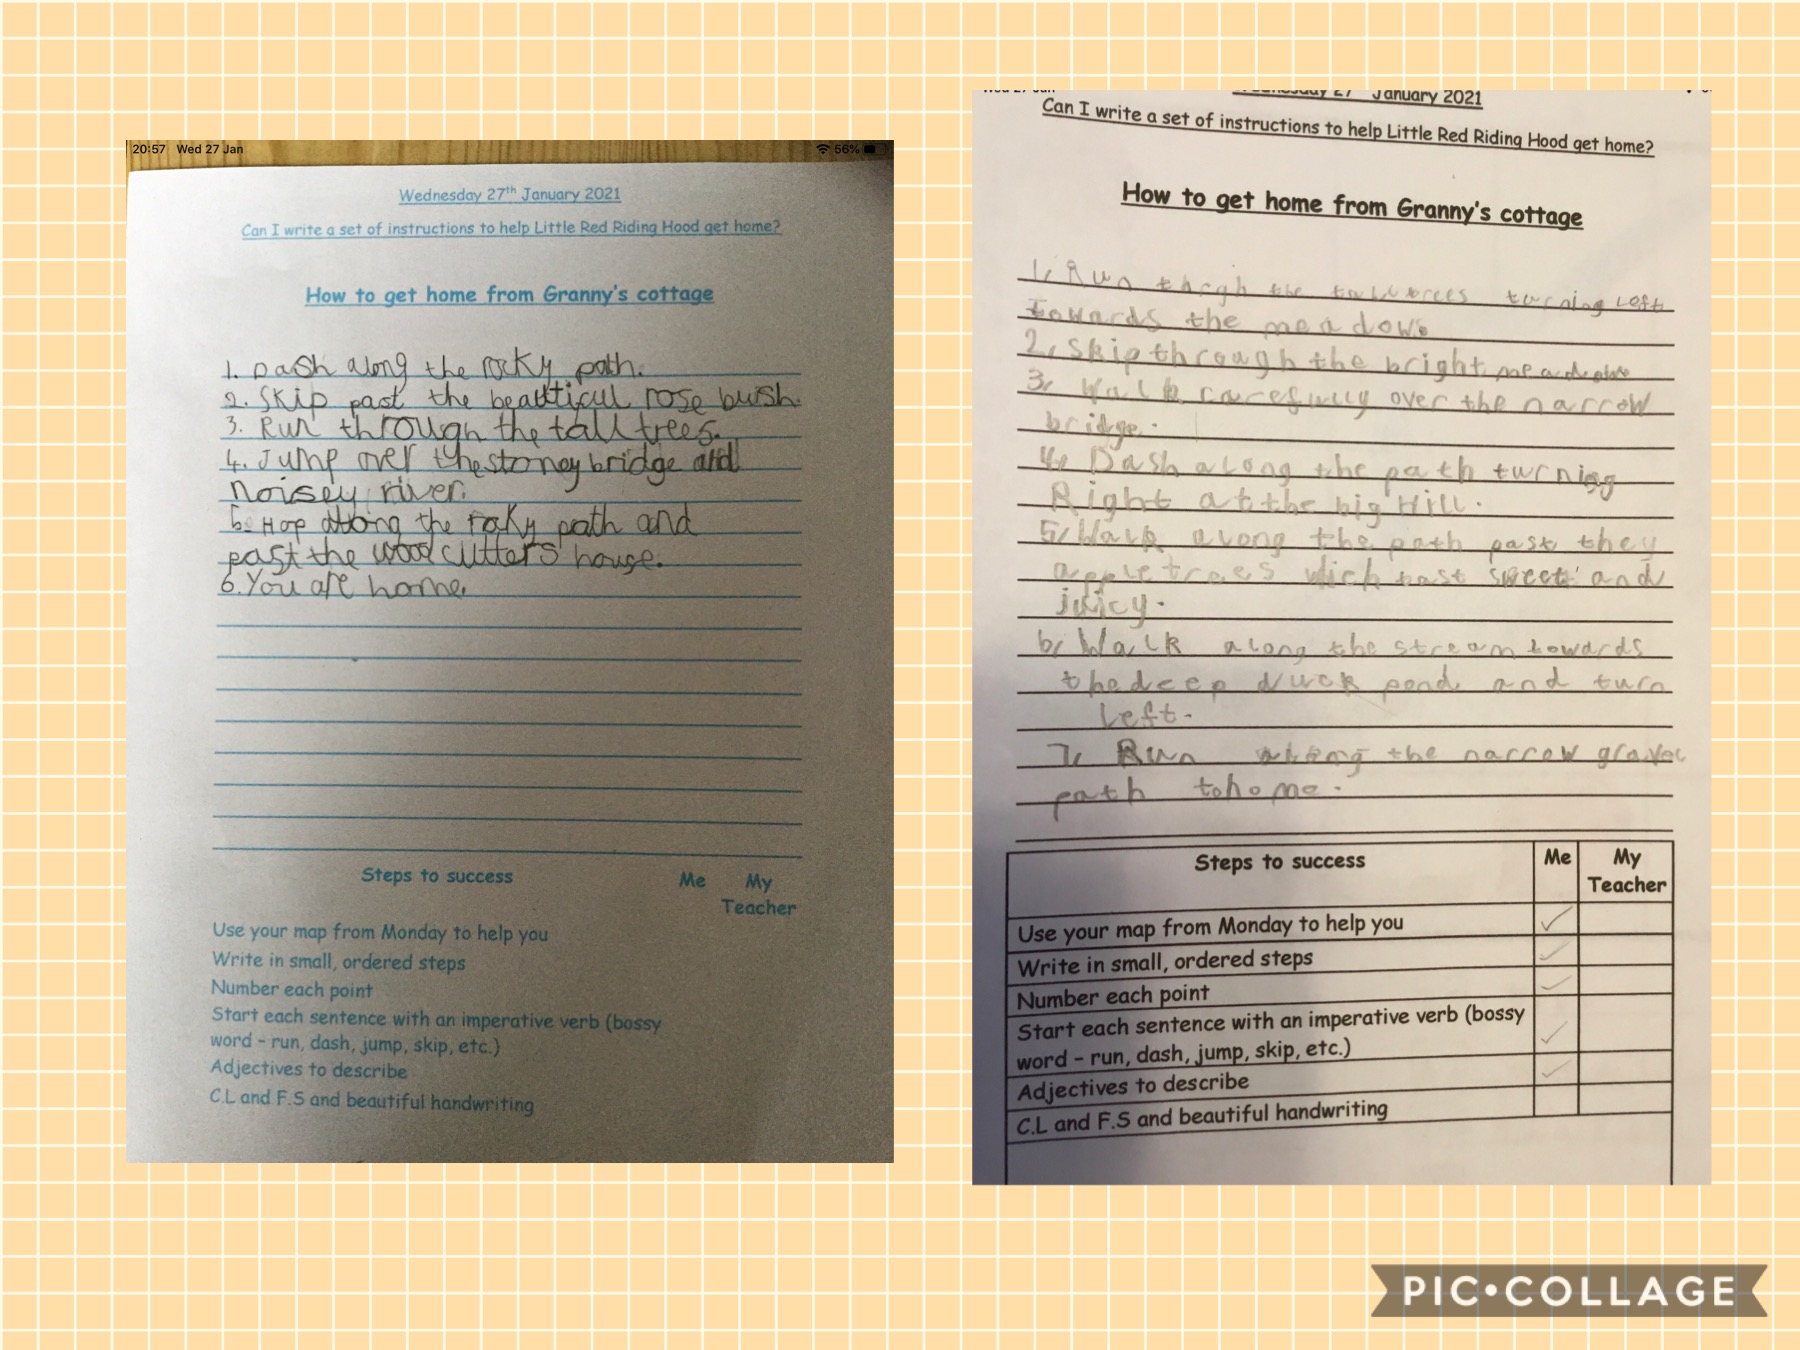 20:57 Wed 27 Jan
56%
Wednesday 27th January 2021
Can I write a set of instructions to help Little Red Riding Hood get home?
How to get home from Granny's cottage
1. Dash along the rocky path.
2. Skip past the beautiful rose bush.
3. Run through the tall trees.
4. Jump over the stoney bridge and
noisey river.
5. Hop along the roky path and
past the woodcutters house.
6. You are home.
Steps to success Me My
Teacher
Use your map from Monday to help you
Write in small, ordered steps
Number each point
Start each sentence with an imperative verb (bossy
word - run, dash, jump, skip, etc.)
Adjectives to describe
C.L and F.S and beautiful handwriting
January 2021
Can I write a set of instructions to help Little Red Riding Hood get home?
How to get home from Granny's cottage
1, Run thrgh the tall trees turning left
towards the meadow.
2, Skip through the bright meadow
3, Walk carefully over the narrow
bridge.
4, Dash along the path turning
Right at the big Hill.
5, Walk along the path past they
apple trees wich tast sweet and
juicy.
6, Walk along the stream towards
the deep duck pond and turn
Left.
7, Run along the narrow gravel
path to home.
Steps to success Me My
Teacher
Use your map from Monday to help you
Write in small, ordered steps
Number each point
Start each sentence with an imperative verb (bossy
word - run, dash, jump, skip, etc.)
Adjectives to describe
C.L and F.S and beautiful handwriting
PIC•COLLAGE